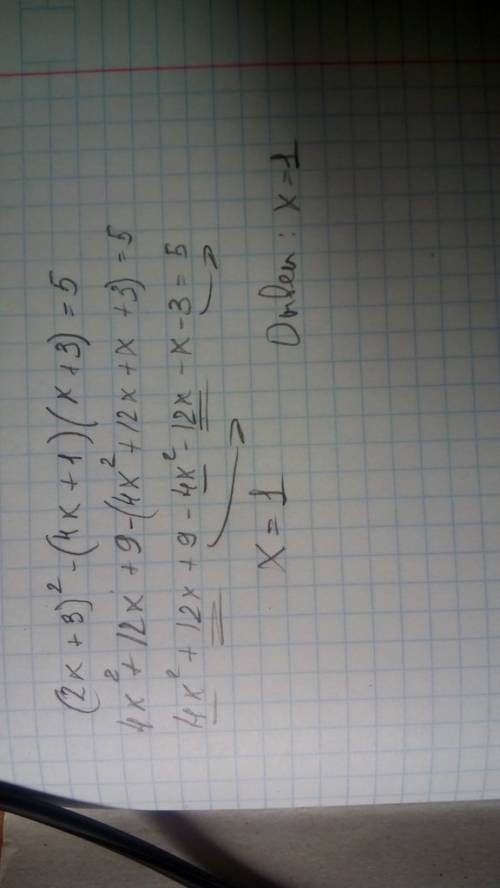 (2x+3)² - (4x+1)(x+3) = 5
4x² + 12x + 9 - (4x² + 12x + x + 3) = 5
4x² + 12x + 9 - 4x² - 12x - x - 3 = 5
x = 1
Ответ: x = 1